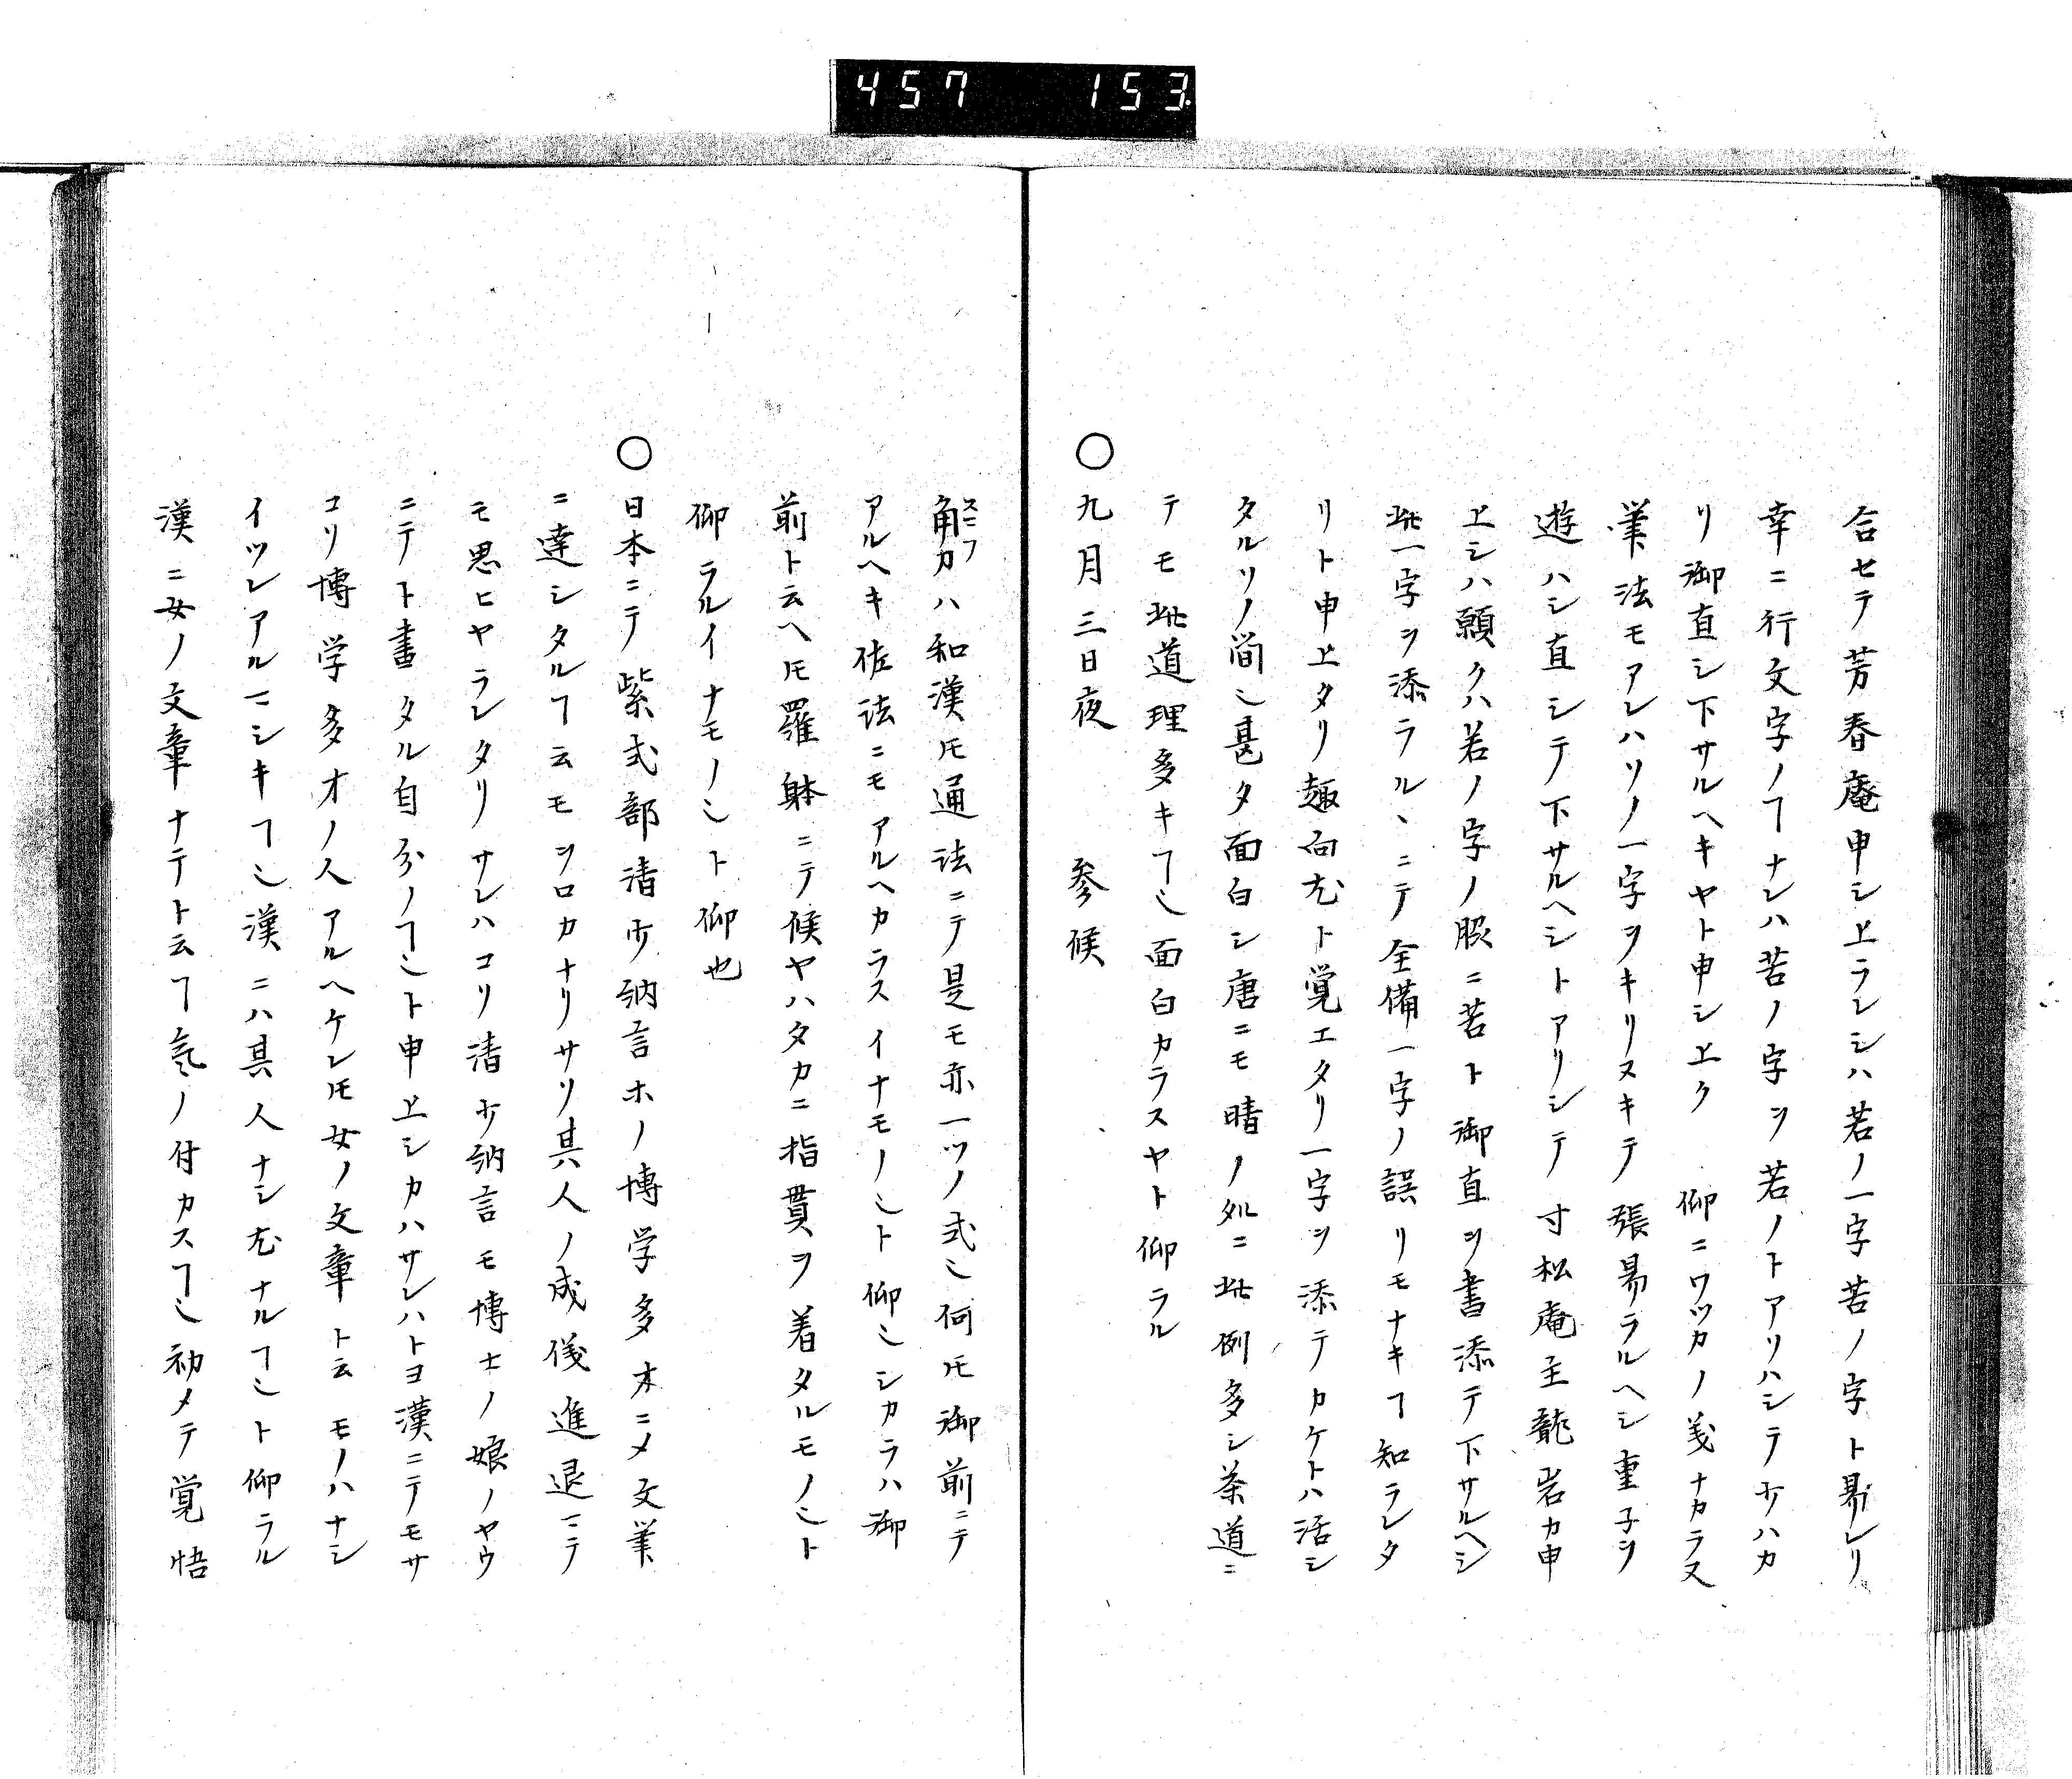 457 153
合セテ芳春庵申シ上ラレシハ若ノ一字苦ノ字ト易レリ
幸ニ行文字ノヿナレハ苦ノ字ヲ若ノトアリハシテ少ハカ
リ御直シ下サルヘキヤト申シ上ク 仰ニワツカノ義ナカラ又
筆法モアレハソノ一字ヲキリヌキテ張易ラルヘシ重子ヲ
遊ハシ直シテ下サルヘシトアリシテ寸松庵主龍岩カ申
上シハ願クハ若ノ字ノ股ニ苦ト御直ヲ書添テ下サルヘシ
此一字ヲ添ラルヽニテ全備一字ノ誤リモナキヿ知ラレタ
リト申上タリ趣向尤ト覚エタリ一字ヲ添テカケトハ活シ
タルソノ間〆甚タ面白シ唐ニモ晴ノ処ニ此例多シ茶道ニ
テモ此道理多キヿ〆面白カラスヤト仰ラル
〇九月三日夜 参候
角力ハ和漢𪜈通法ニテ是モ亦一ツノ式〆何𪜈御前ニテ
スマフ
アルヘキ佐法ニモアルヘカラスイナモノ〆ト仰〆シカラハ御
前ト云ヘ𪜈羅躰ニテ候ヤハタカニ指貫ヲ着タルモノ〆ト
仰ラルイナモノ〆ト仰也
〇日本ニテ紫式部清少納言ホノ博学多才ニメ文筆
ニ達シタルヿ云モヲロカナリサソ其人ノ成儀進退マテ
モ思ヒヤラレタリサレハコソ清少納言モ博士ノ娘ノヤウ
ニテト書タル自分ノヿ〆ト申上シカハサレハトヨ漢ニテモサ
コソ博学多才ノ人アルヘケレ𪜈女ノ文章ト云モノハナシ
イツレアルマシキヿ〆漢ニハ其人ナシ尤ナルヿ〆ト仰ラル
漢ニ女ノ文章ナテト云ヿ気ノ付カスヿ〆初メテ覚悟